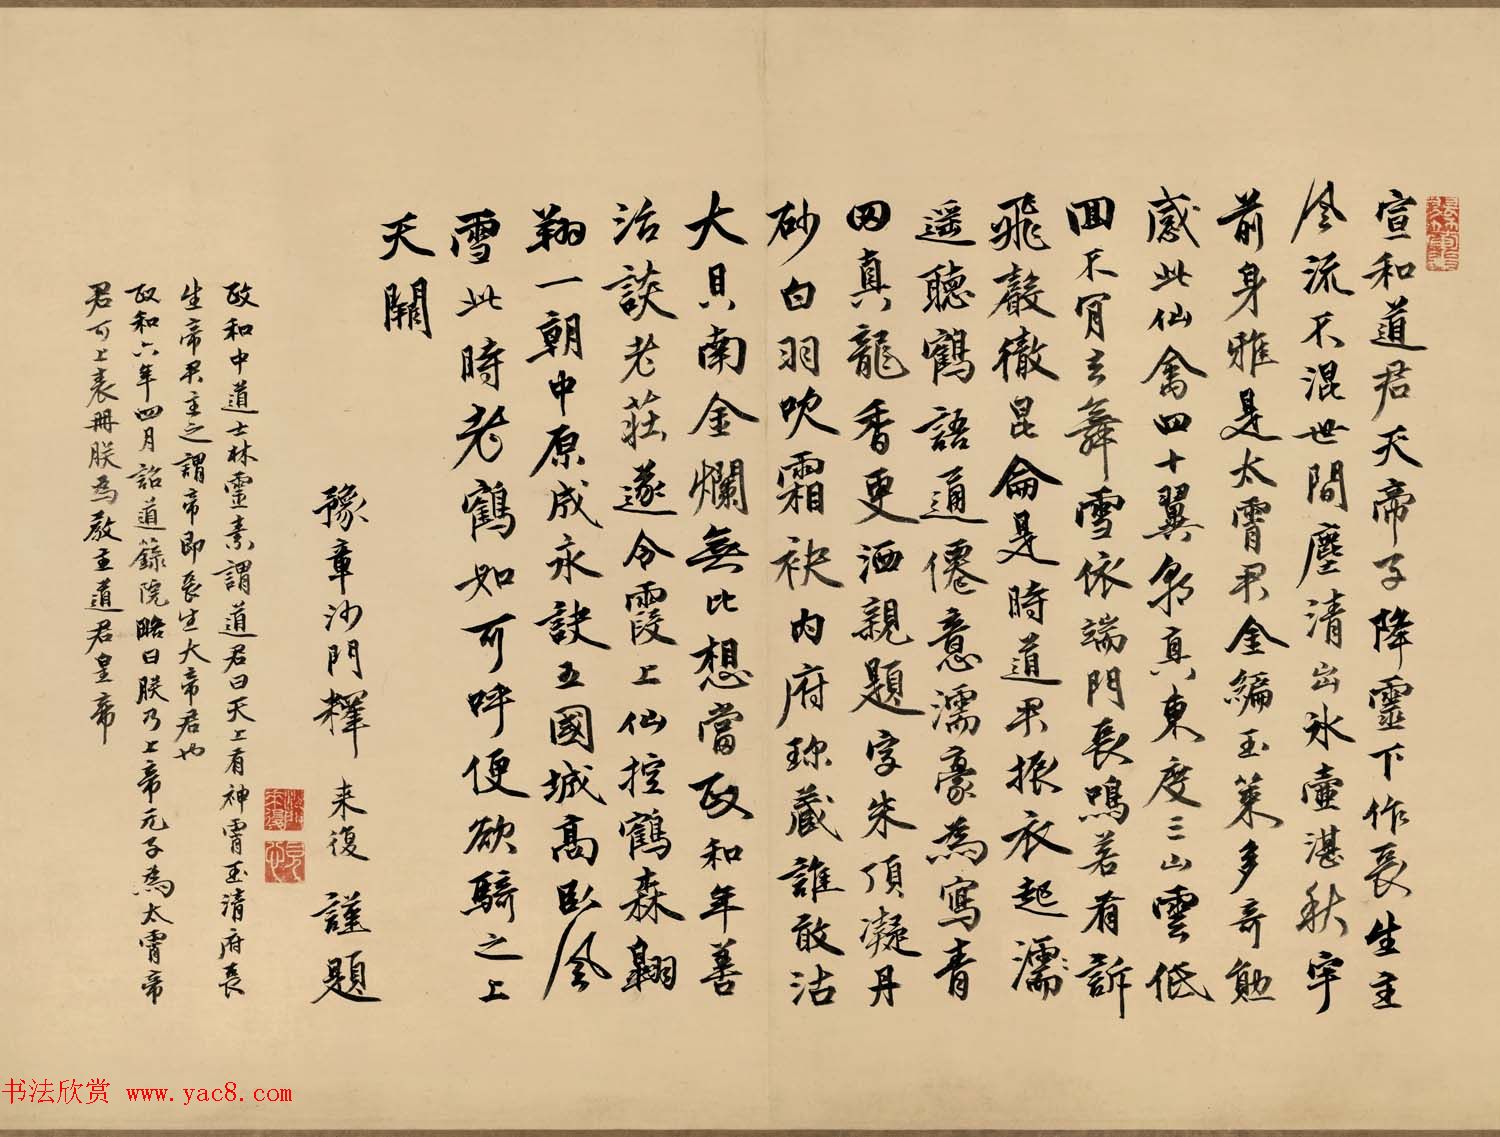 宣和道君天帝子降靈下作長生主
風流不混世間塵清出氷壺湛秋宇
前身雅是太霄君金編玉策多奇勛
感此仙禽四十翼朝真東度三山雲低
回不肎去舞雪依端門長鳴若有訴
飛聲徹昆侖是時道君振衣起濡
遥聽鶴語通僊意濡豪為寫青
田真龍香更洒親題字朱頂凝丹
砂白羽吹霜袂内府珎藏誰敢沽
大貝南金爛無比想當政和年善
治談老莊遂令霞上仙控鶴森翱
翔一朝中原成永訣五國城高臥風
雪此時老鶴如可呼便欲騎之上
天關
豫章沙門釋来復謹題
政和中道士林靈素謂道君曰天上有神霄玉清府長
生帝君主之謂帝即長生大帝君也
政和六年四月詔道籙院略曰朕乃上帝元子為太霄帝
君可上表冊朕為教主道君皇帝
书法欣赏 www.yac8.com